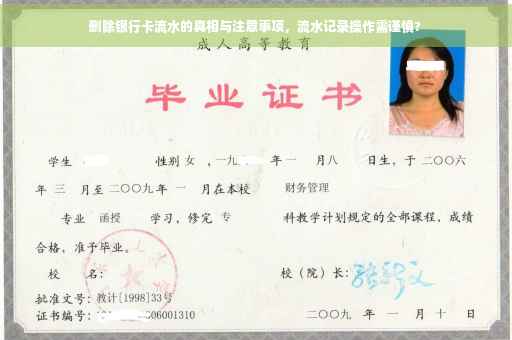 删除银行卡流水的真相与注意事项，流水记录操作需谨慎？
成人高等教育
毕业证书
学生 性别 女 ，一九 年一 月八 日生，于二〇〇六
年 三 月至二〇〇九年 一 月在本校 财务管理
专业 函授 学习，修完 专 科教学计划规定的全部课程，成绩
合格，准予毕业。
校 名： 校（院）长：
批准文号：教计[1998]33号
证书编号： 606001310 二〇〇九 年 一 月 十 日